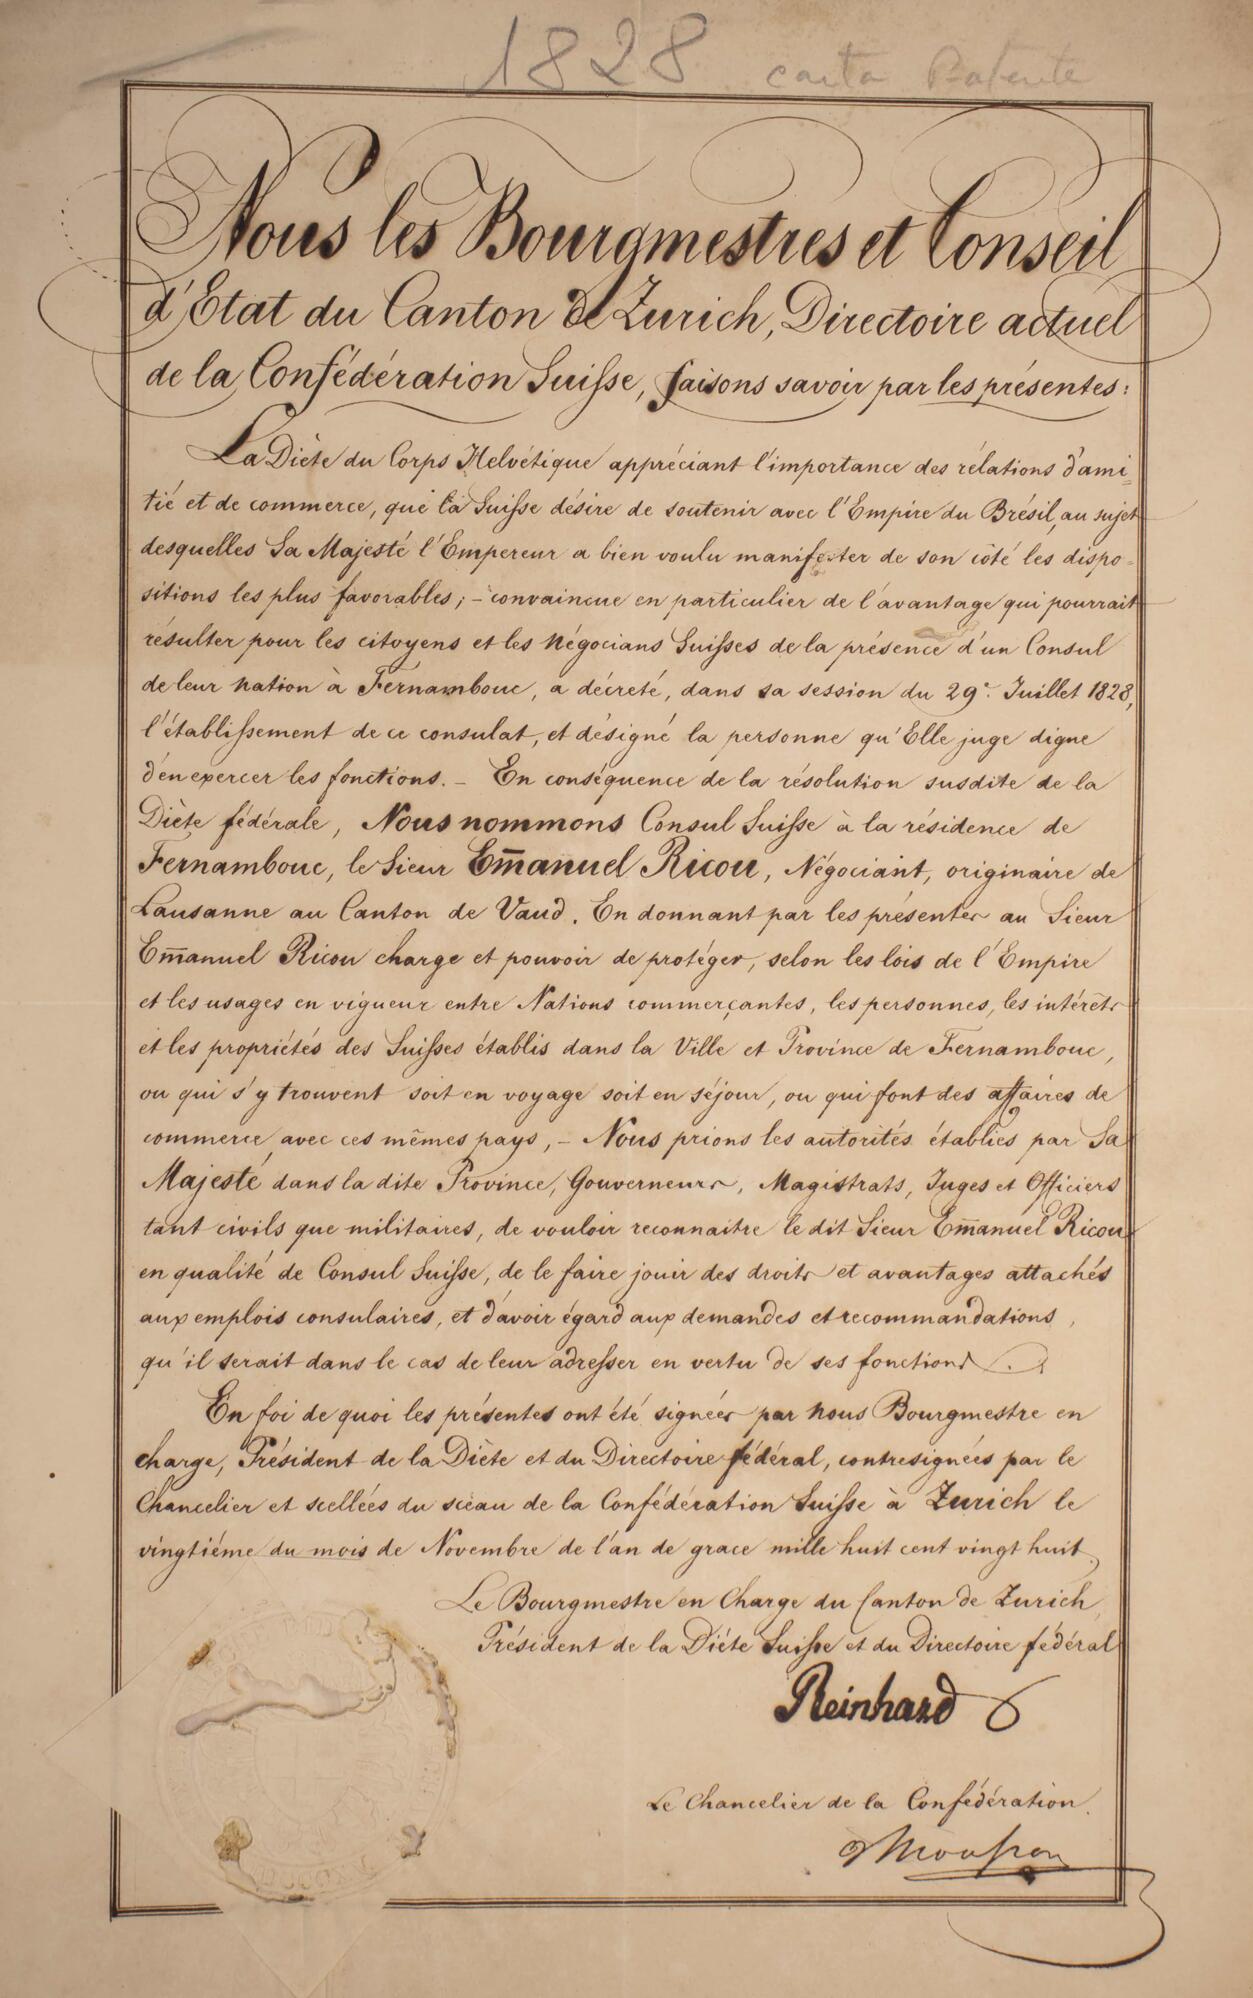 1828 carta Patente
Nous les Bourgmestres et Conseil
d'Etat du Canton de Zurich, Directoire actuel
de la Confédération Suiſse, faisons savoir par les présentes:
La Diète du Corps Helvétique appréciant l'importance des rélations d'ami-
tié et de commerce, que la Suiſse désire de soutenir avec l'Empire du Brésil, au sujet
desquelles Sa Majesté l'Empereur a bien voulu manifester de son côté les dispo-
sitions les plus favorables; - convaincue en particulier de l'avantage qui pourrait
résulter pour les citoyens et les négocians Suiſses de la présence d'un Consul
de leur nation à Fernambouc, a décreté, dans sa session du 29e. Juillet 1828,
l'établiſsement de ce consulat, et désigné la personne qu'Elle juge digne
d'en exercer les fonctions. - En conséquence de la résolution susdite de la
Diète fédérale, Nous nommons Consul Suiſse à la résidence de
Fernambouc, le Sieur Em̄anuel Ricou, Négociant, originaire de
Lausanne au Canton de Vaud. En donnant par les présentes au Sieur
Em̄anuel Ricou charge et pouvoir de protéger, selon les lois de l'Empire
et les usages en vigueur entre Nations commerçantes, les personnes, les intérêts
et les propriétés des Suiſses établis dans la Ville et Province de Fernambouc,
ou qui s'y trouvent soit en voyage soit en séjour, ou qui font des affaires de
commerce avec ces mêmes pays, - Nous prions les autorités établies par Sa
Majesté dans la dite Province, Gouverneurs, Magistrats, Juges et Officiers
tant civils que militaires, de vouloir reconnaitre le dit Sieur Em̄anuel Ricou
en qualité de Consul Suiſse, de le faire jouir des droits et avantages attachés
aux emplois consulaires, et d'avoir égard aux demandes et recommandations,
qu'il serait dans le cas de leur adreſser en vertu de ses fonctions.
En foi de quoi les présentes ont été signées par nous Bourgmestre en
charge, Président de la Diète et du Directoire fédéral, contresignées par le
Chancelier et scellées du sceau de la Confédération Suiſse à Zurich le
vingtiéme du mois de Novembre de l'an de grace mille huit cent vingt huit,
Le Bourgmestre en Charge du Canton de Zurich,
Président de la Diéte Suiſse et du Directoire fédéral
Reinhard
Le Chancelier de la Confédération.
Mouſson